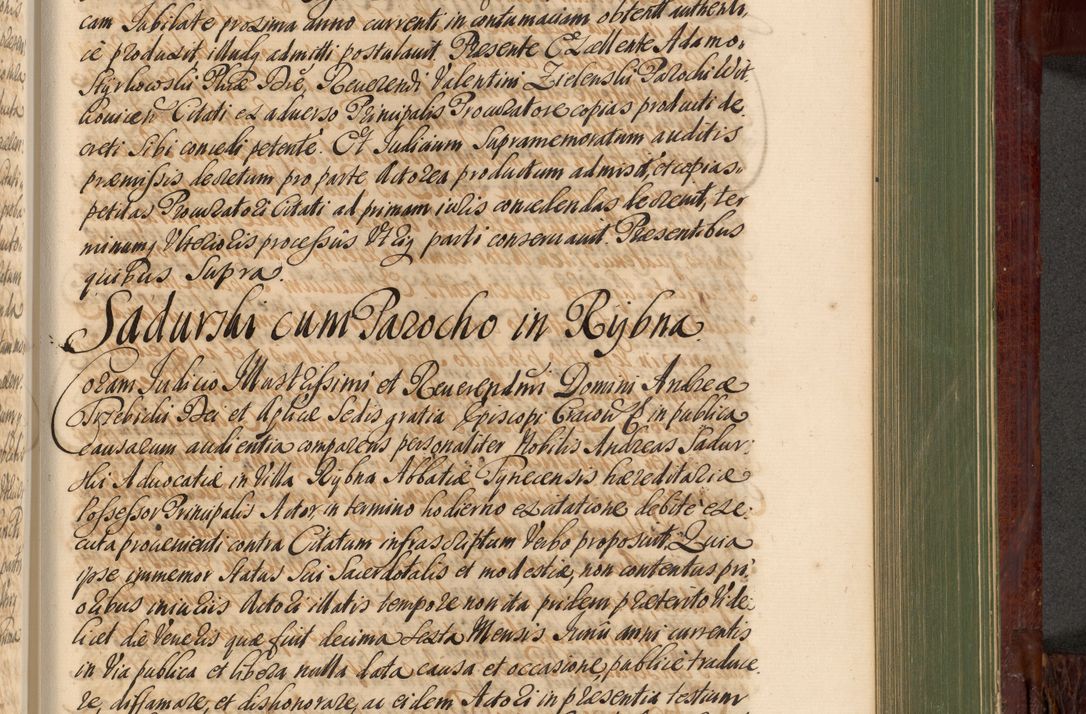 cam Iubilate proxima anno currenti in contumaciam obtent authenti,
ce produxit illudq admitti postulauit. Presente Excellente Adamo,
Styrkowski Phiae Dre, Reuerendi Valentini Zielenski Parochi Wit,
kouicen Citati ex aduerso Principalis Procuratore copias producti de,
creti sibi concedi petente. Et Iudicium supramemoratum auditis
præmissis decretum pro parte Actorea productum admisit, et copias,
petitas Procuratori Citati ad primam iuris concedendas decreuit, ter
minumq Vlterioris processus Vtriq parti conseruauit. Presentibus
quibus Supra.
Sadurski cum Parocho in Rybna.
Coram Iudicio Illustrissimi et Reuerendmi Domini Andreæ
Trzebicki Dei et Aplicæ Sedis gratia Episcopi Cracou in publica
causarum audientia comparens personaliter Nobilis Andreas Sadur:
ski Aduocatiæ in Villa Rybna Abbatiæ Tynecensis hæreditariæ
Possessor Principalis Actor in termino hodierno ex citatione debite exe:
cuta prouenienti contra Citatum infrascriptum Verbo proposuit. Quia
ipse immemor status sui Sacerdotalis et modestiæ, non contentus pri,
oribus iniurijs Actori illatis tempore non ita pridem præterito Vide,
licet die Veneris quæ fuit decima sexta Mensis Iunij anni currentis
in Via publica et libera nulla data causa et occasione, publice traduce
re, diffamare, et dishonorare, ac eidem Actori in præsentia testium